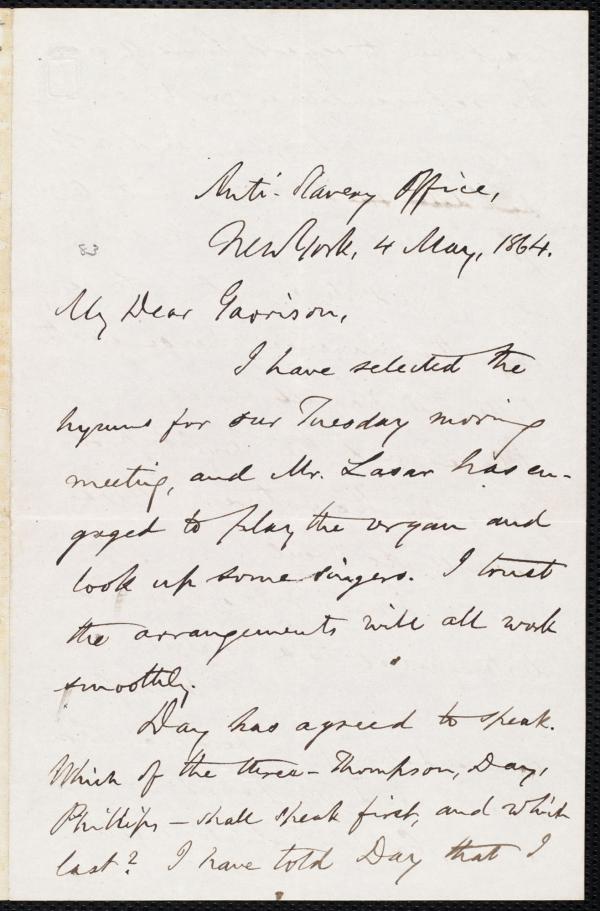 Anti-Slavery Office,
New York, 4 May, 1864.
My Dear Garrison,
I have selected the
hymns for our Tuesday morning
meeting, and Mr. Lasar has en-
gaged to play the organ and
look up some singers. I trust
the arrangements will all work
smoothly.
Day has agreed to speak.
Which of the three – Thompson, Day,
Phillips – shall speak first, and which
last? I have told Day that I